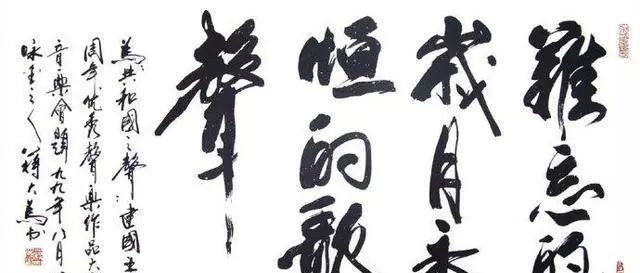 難忘的
歲月永
恒的歌
聲
為共和國之聲:建國五
周年优秀聲樂作品大
音樂會題九九年八月
咏全之人蔣大為书